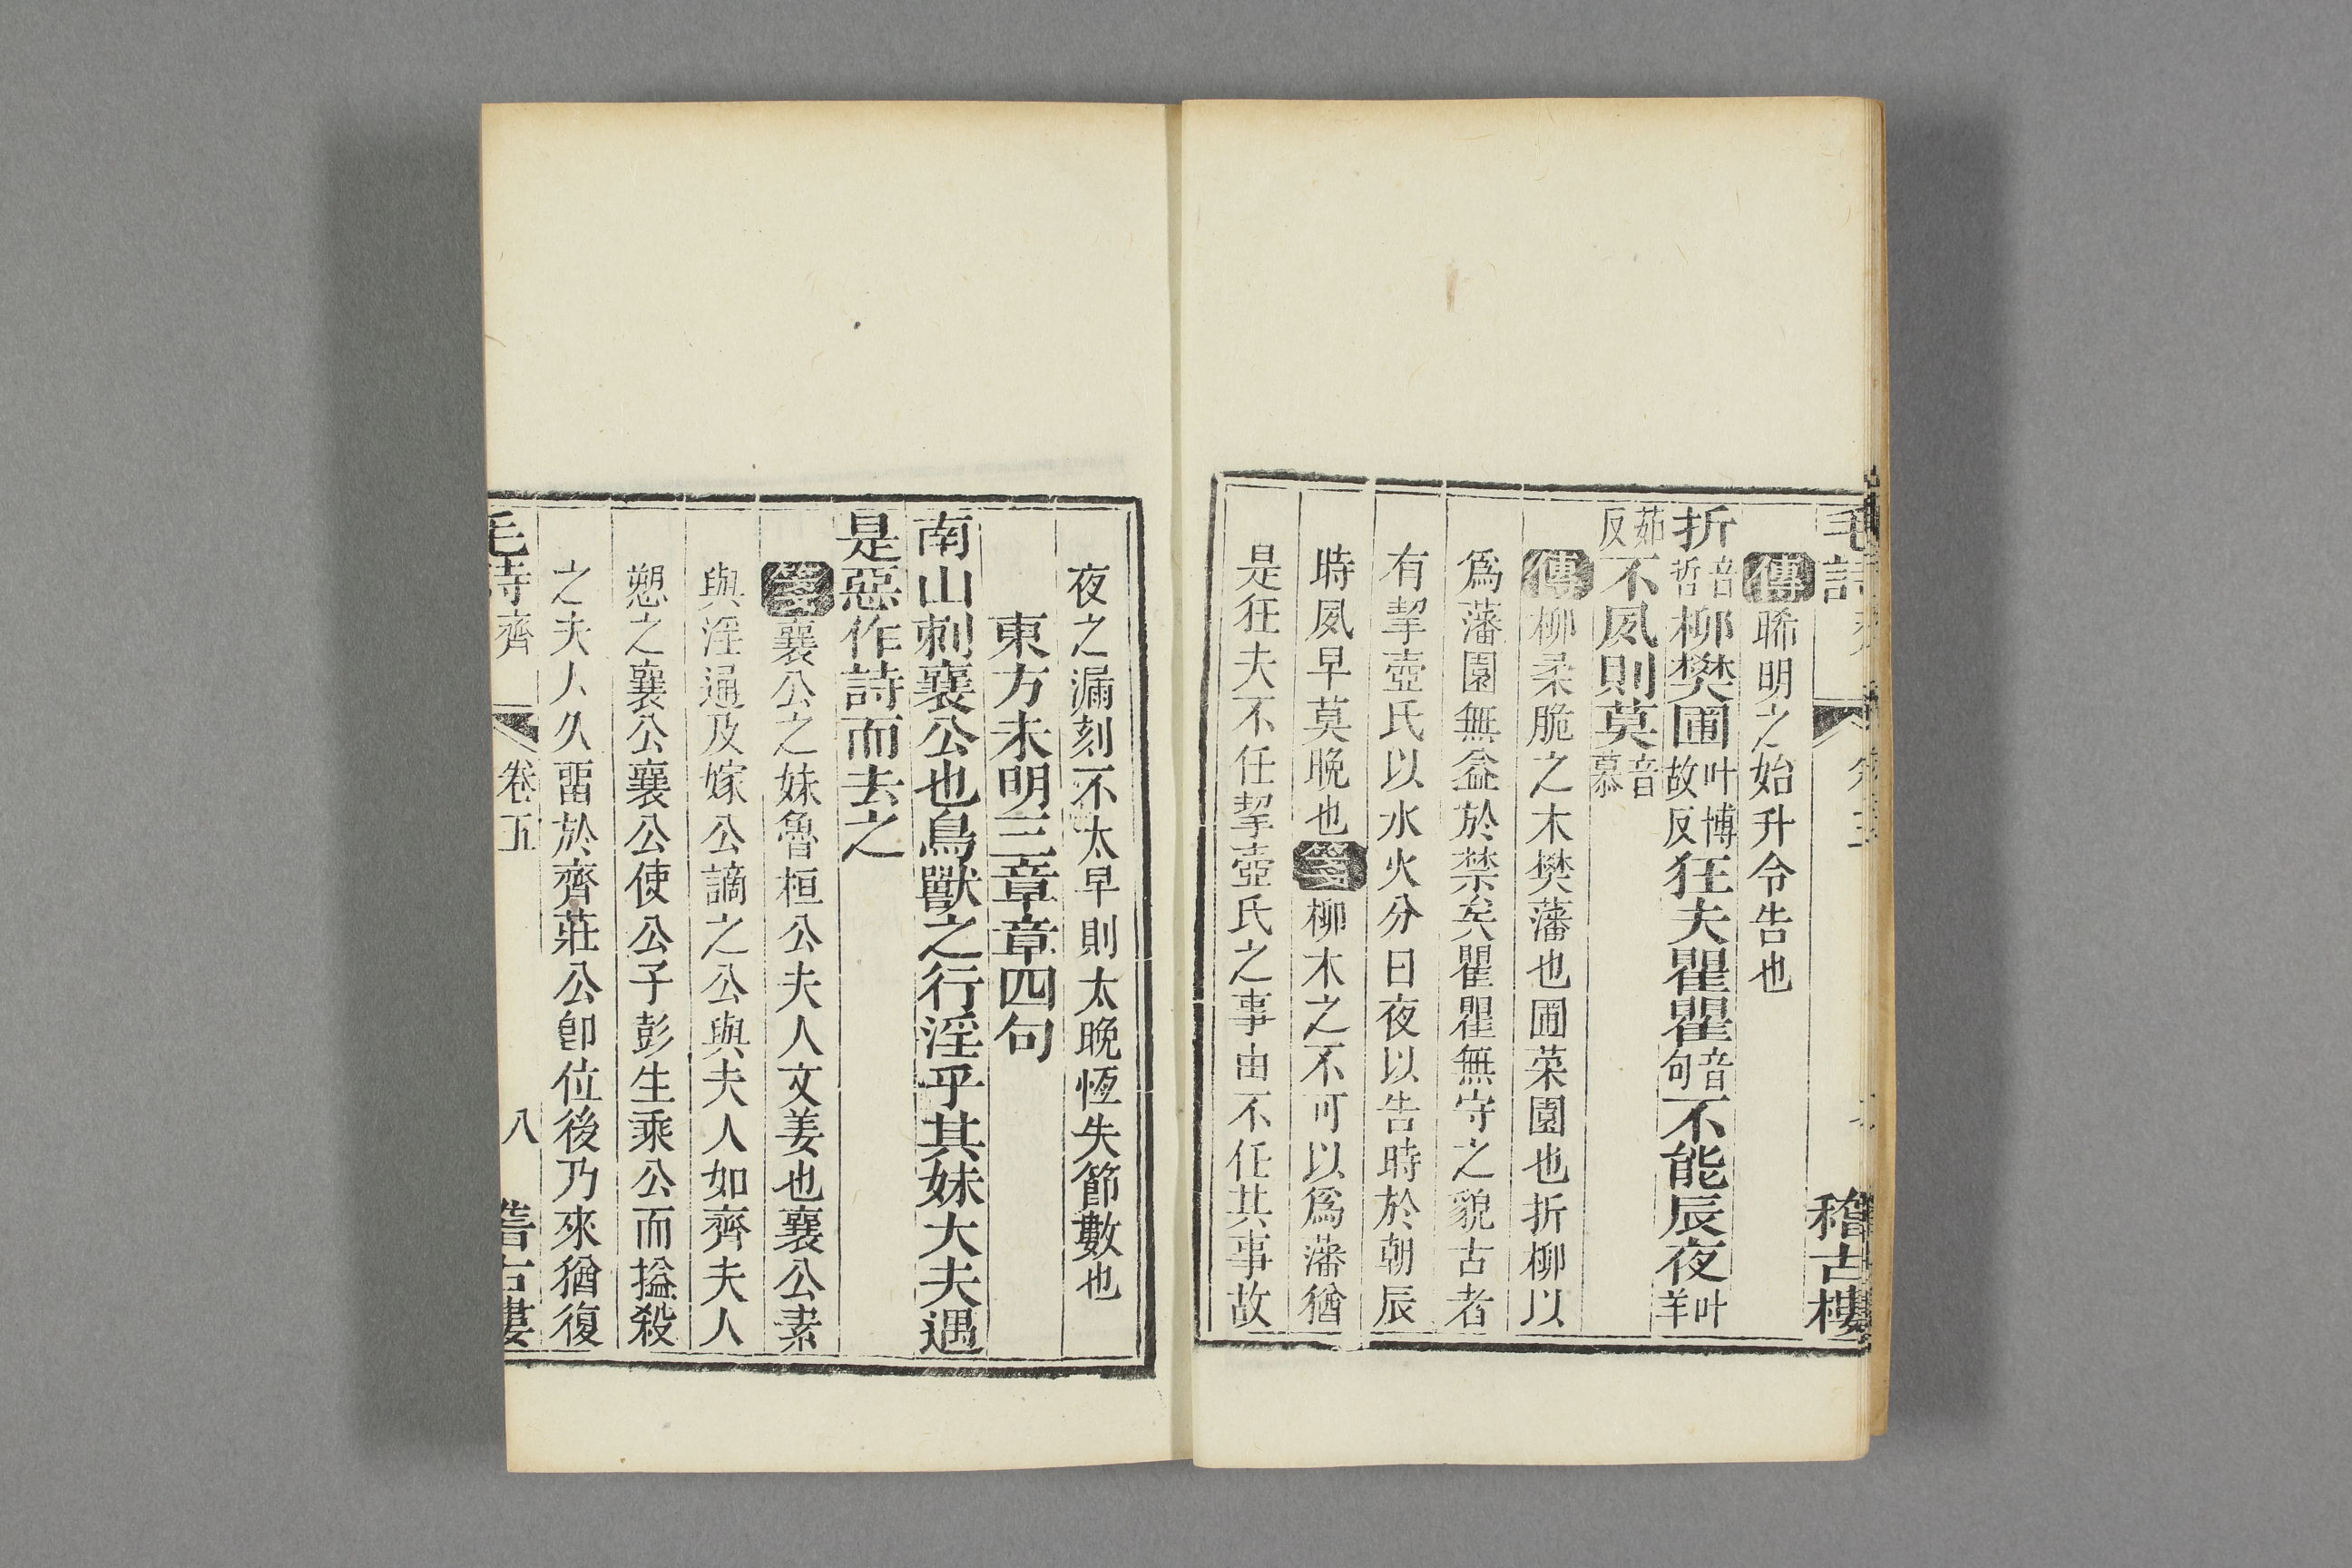 毛詩
稽古樓
傳晞明之始升令告也
折音哲柳樊圃叶博故反狂夫瞿瞿音句不能辰夜叶羊
茹反不夙則莫音慕
傳柳柔脆之木樊藩也圃菜園也折柳以
爲藩園無益於禁矣瞿瞿無守之貌古者
有挈壺氏以水火分日夜以告時於朝辰
時夙早莫晚也箋柳木之不可以爲藩猶
是狂夫不任挈壺氏之事由不任其事故
夜之漏刻不太早則太晚恆失節數也
東方未明三章章四句
南山刺襄公也鳥獸之行淫乎其妹大夫遇
是惡作詩而去之
箋襄公之妹魯桓公夫人文姜也襄公素
與淫通及嫁公謫之公與夫人如齊夫人
愬之襄公襄公使公子彭生乘公而搤殺
之夫人久畱於齊莊公卽位後乃來猶復
毛詩齊 卷五 八 稽古樓